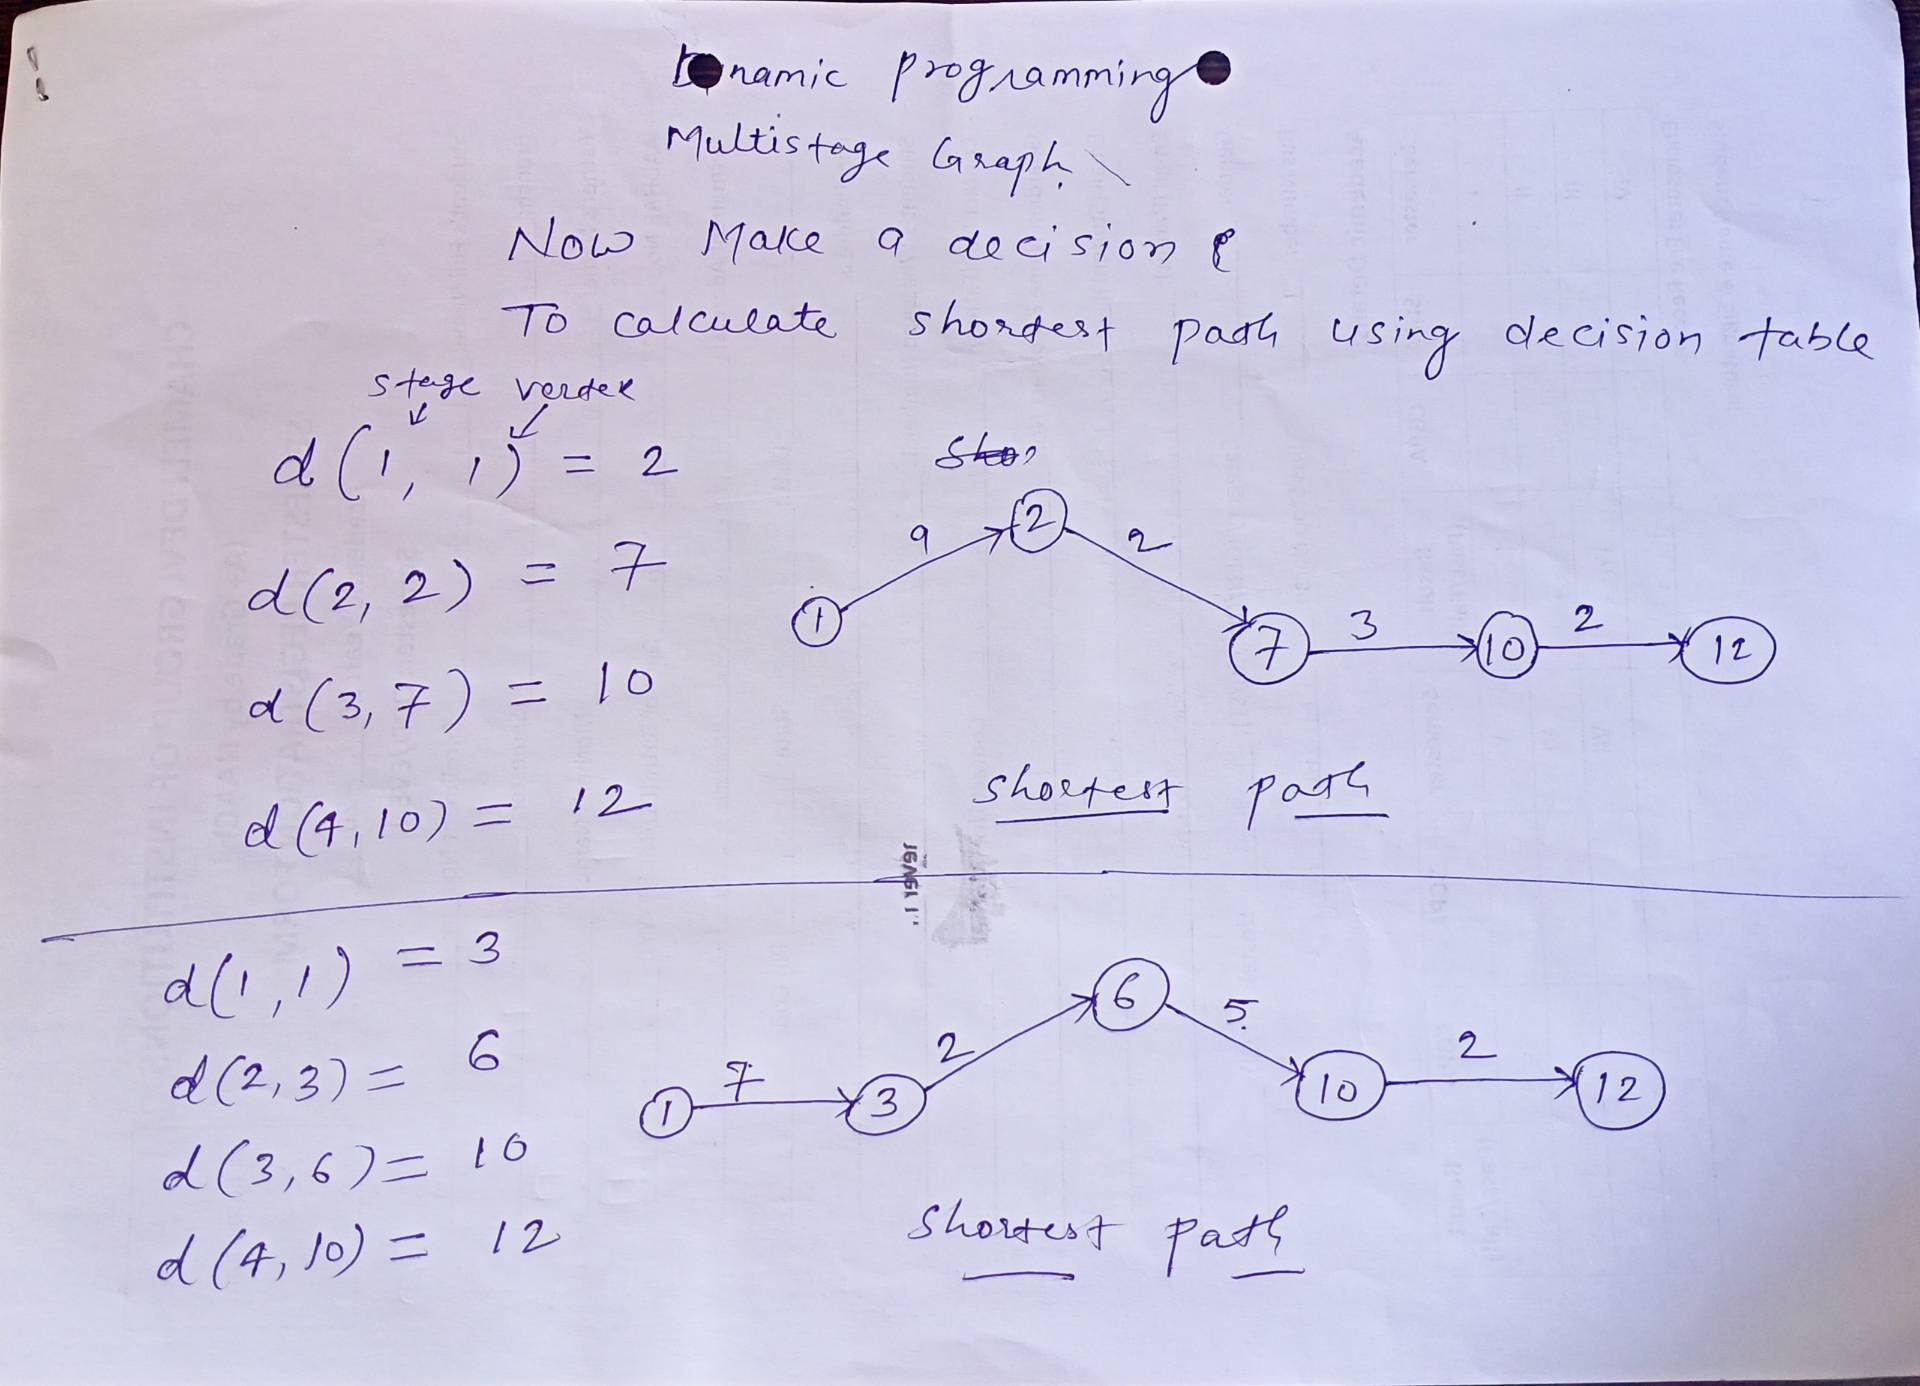 namic programming
Multistage Graph
Now Make a decision
To calculate shortest path using decision table
stage vertex
d(1, 1) = 2
d(2, 2) = 7
d(3, 7) = 10
d(4, 10) = 12
1 9 2 2 7 3 10 2 12
shortest path
d(1, 1) = 3
d(2, 3) = 6
d(3, 6) = 10
d(4, 10) = 12
1 7 3 2 6 5 10 2 12
shortest path